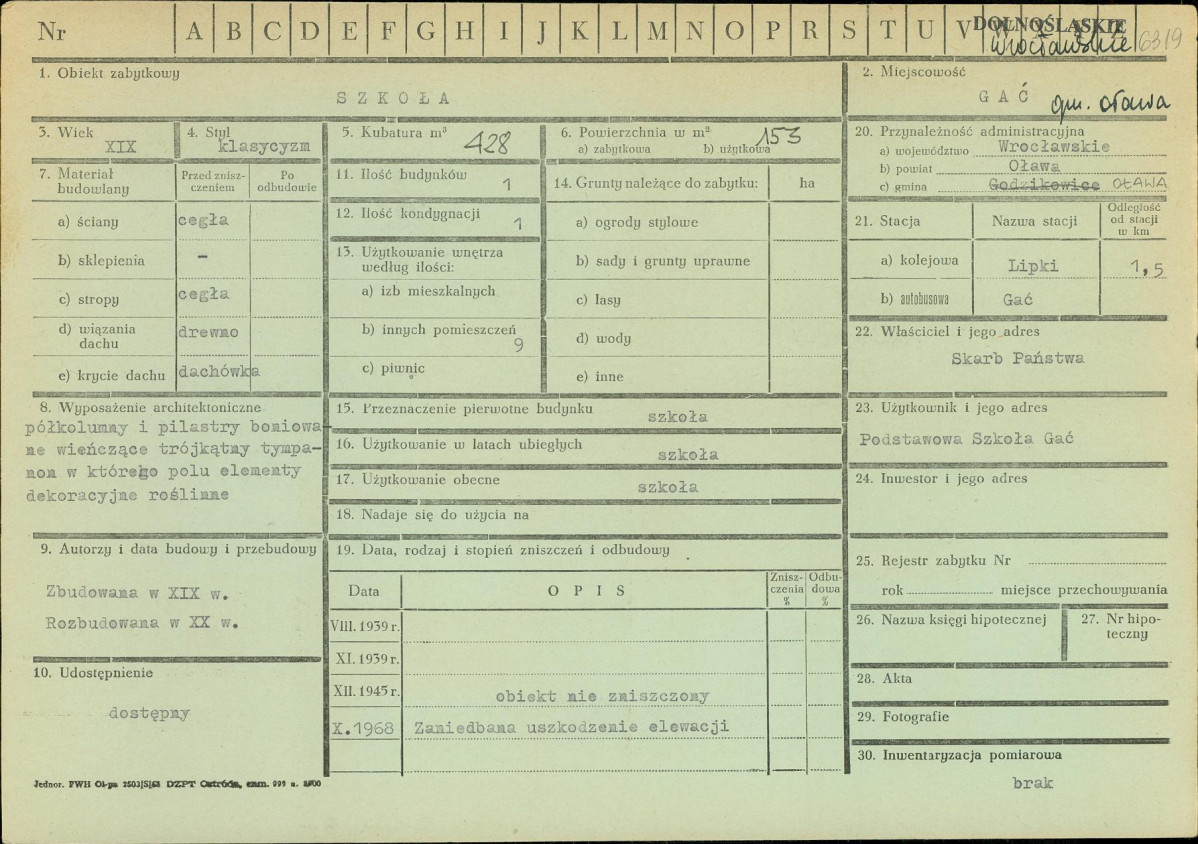 Nr A B C D E F G H I J K L M N O P R S T U V
DOLNOŚLĄSKIE
wrocławskie 6319
1. Obiekt zabytkowy
SZKOŁA
2. Miejscowość
GAĆ gm. Oława
3. Wiek
XIX
4. Styl
klasycyzm
5. Kubatura m³
428
6. Powierzchnia w m²
153
a) zabytkowa b) użytkowa
7. Materiał budowlany
Przed zniszczeniem
Po odbudowie
a) ściany cegła
b) sklepienia -
c) stropy cegła
d) wiązania dachu drewno
e) krycie dachu dachówka
8. Wyposażenie architektoniczne
półkolumny i pilastry boniowa-
ne wieńczące trójkątny tympa-
non w którego polu elementy
dekoracyjne roślinne
9. Autorzy i data budowy i przebudowy
Zbudowana w XIX w.
Rozbudowana w XX w.
10. Udostępnienie
dostępny
11. Ilość budynków
1
12. Ilość kondygnacji
1
13. Użytkowanie wnętrza
według ilości:
a) izb mieszkalnych
b) innych pomieszczeń
9
c) piwnic
14. Grunty należące do zabytku: ha
a) ogrody stylowe
b) sady i grunty uprawne
c) lasy
d) wody
e) inne
15. Przeznaczenie pierwotne budynku
szkoła
16. Użytkowanie w latach ubiegłych
szkoła
17. Użytkowanie obecne
szkoła
18. Nadaje się do użycia na
19. Data, rodzaj i stopień zniszczeń i odbudowy
Data OPIS Zniszczenia % Odbudowa %
VIII. 1939 r.
XI. 1939 r.
XII. 1945 r. obiekt nie zniszczony
X.1968 Zaniedbana uszkodzenie elewacji
20. Przynależność administracyjna
a) województwo Wrocławskie
b) powiat Oława
c) gmina Godzikowice OŁAWA
21. Stacja Nazwa stacji Odległość od stacji w km
a) kolejowa Lipki 1,5
b) autobusowa Gać
22. Właściciel i jego adres
Skarb Państwa
23. Użytkownik i jego adres
Podstawowa Szkoła Gać
24. Inwestor i jego adres
25. Rejestr zabytku Nr
rok miejsce przechowywania
26. Nazwa księgi hipotecznej
27. Nr hipoteczny
28. Akta
29. Fotografie
30. Inwentaryzacja pomiarowa
brak
Jednor. PWH Ol-pa DZPT Ostróda, zam. 999 n.